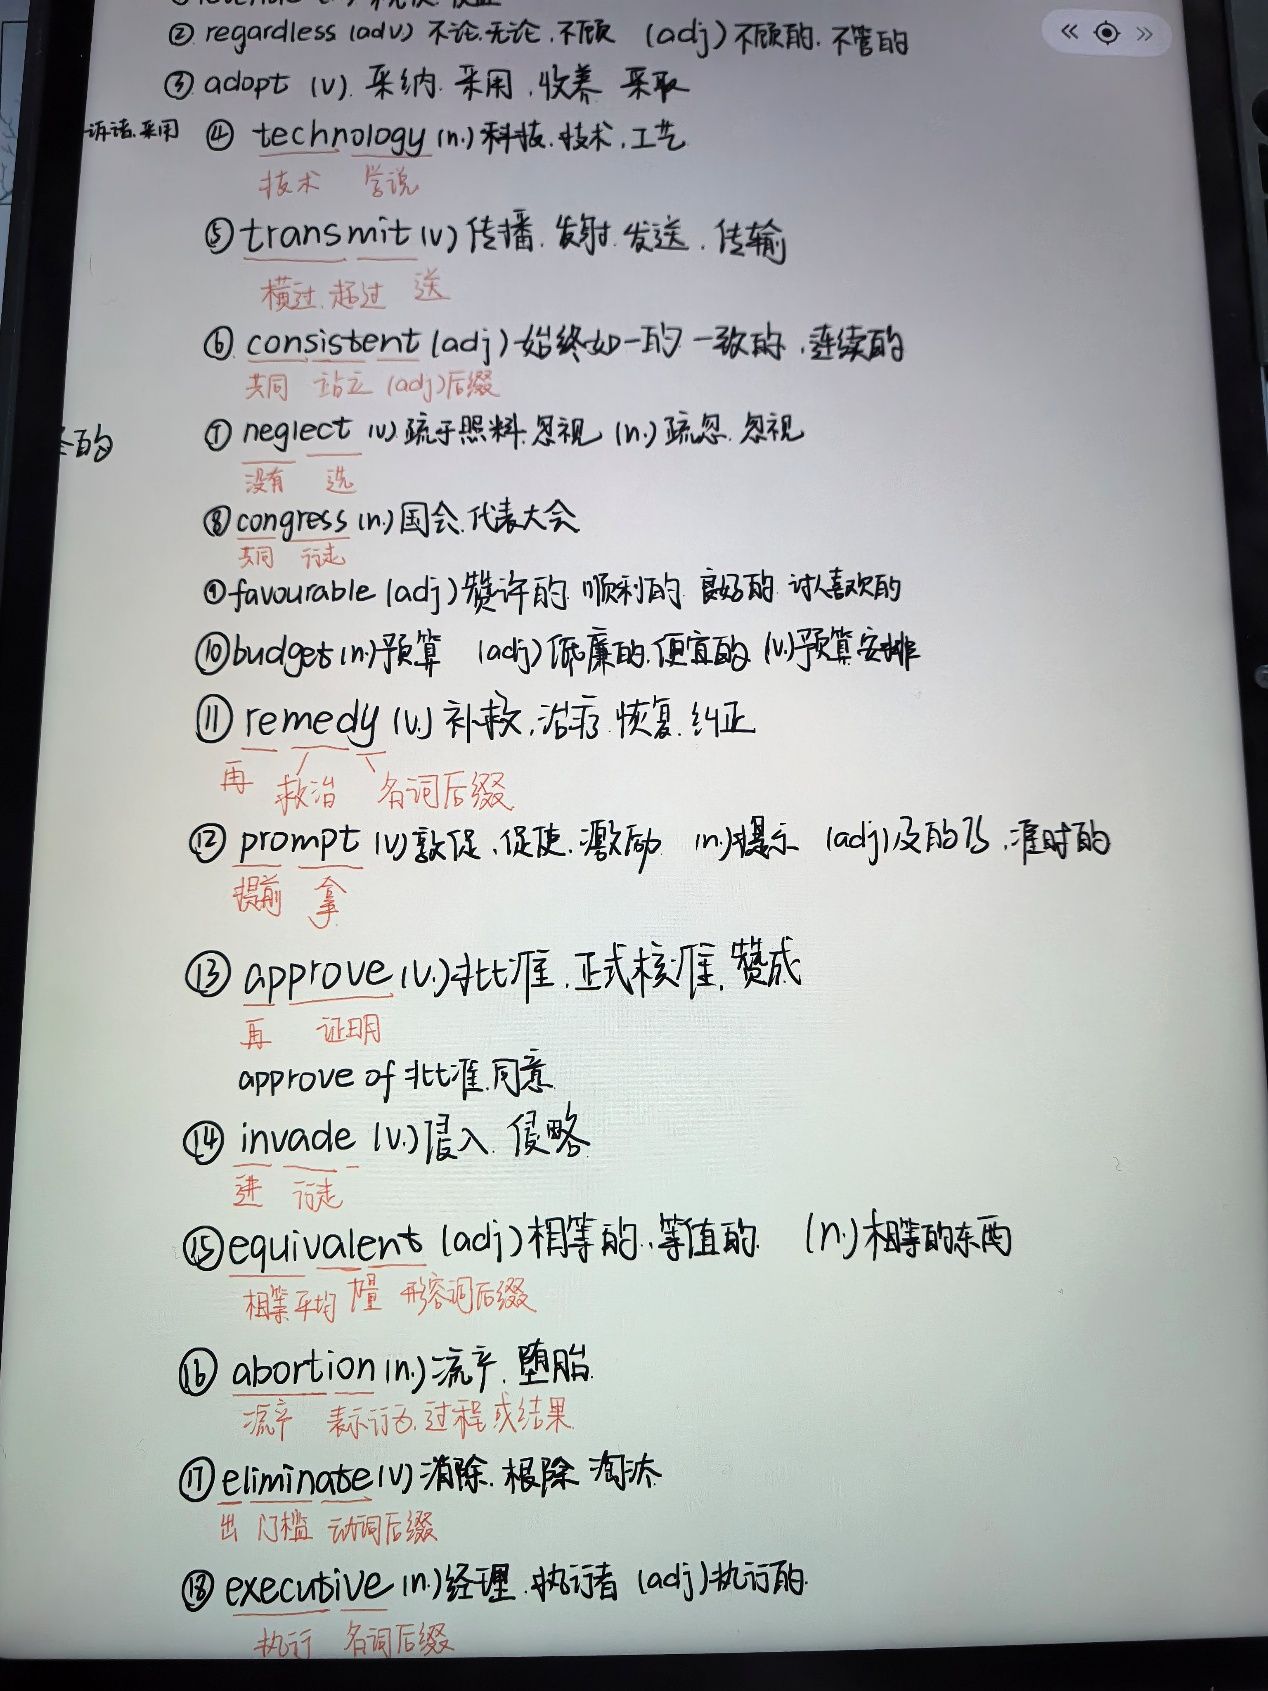 ② regardless (adv) 不论.无论.不顾 (adj) 不顾的.不管的
③ adopt (v). 采纳.采用.收养 采取
诉诸.采用
④ technology (n.) 科技.技术.工艺
技术 学说
⑤ transmit (v) 传播.发射.发送.传输
横过.超过 送
⑥ consistent (adj) 始终如一的 一致的.连续的
共同 站立 (adj)后缀
的
⑦ neglect (v) 疏于照料.忽视 (n.) 疏忽.忽视
没有 选
⑧ congress (n.) 国会.代表大会
共同 行走
⑨ favourable (adj) 赞许的.顺利的.良好的.讨人喜欢的
⑩ budget (n.) 预算 (adj) 低廉的.便宜的 (v.) 预算安排
⑪ remedy (v.) 补救.治疗.恢复.纠正
再 救治 名词后缀
⑫ prompt (v) 敦促.促使.激励 (n.) 提示 (adj) 及的.准时的
提前 拿
⑬ approve (v.) 批准.正式核准.赞成
再 证明
approve of 批准.同意
⑭ invade (v.) 侵入.侵略
进 行走
⑮ equivalent (adj) 相等的.等值的. (n.) 相等的东西
相等平均 力量 形容词后缀
⑯ abortion (n.) 流产.堕胎.
流产 表示行为.过程或结果
⑰ eliminate (v) 消除.根除 淘汰
出 门槛 动词后缀
⑱ executive (n.) 经理.执行者 (adj) 执行的.
执行 名词后缀